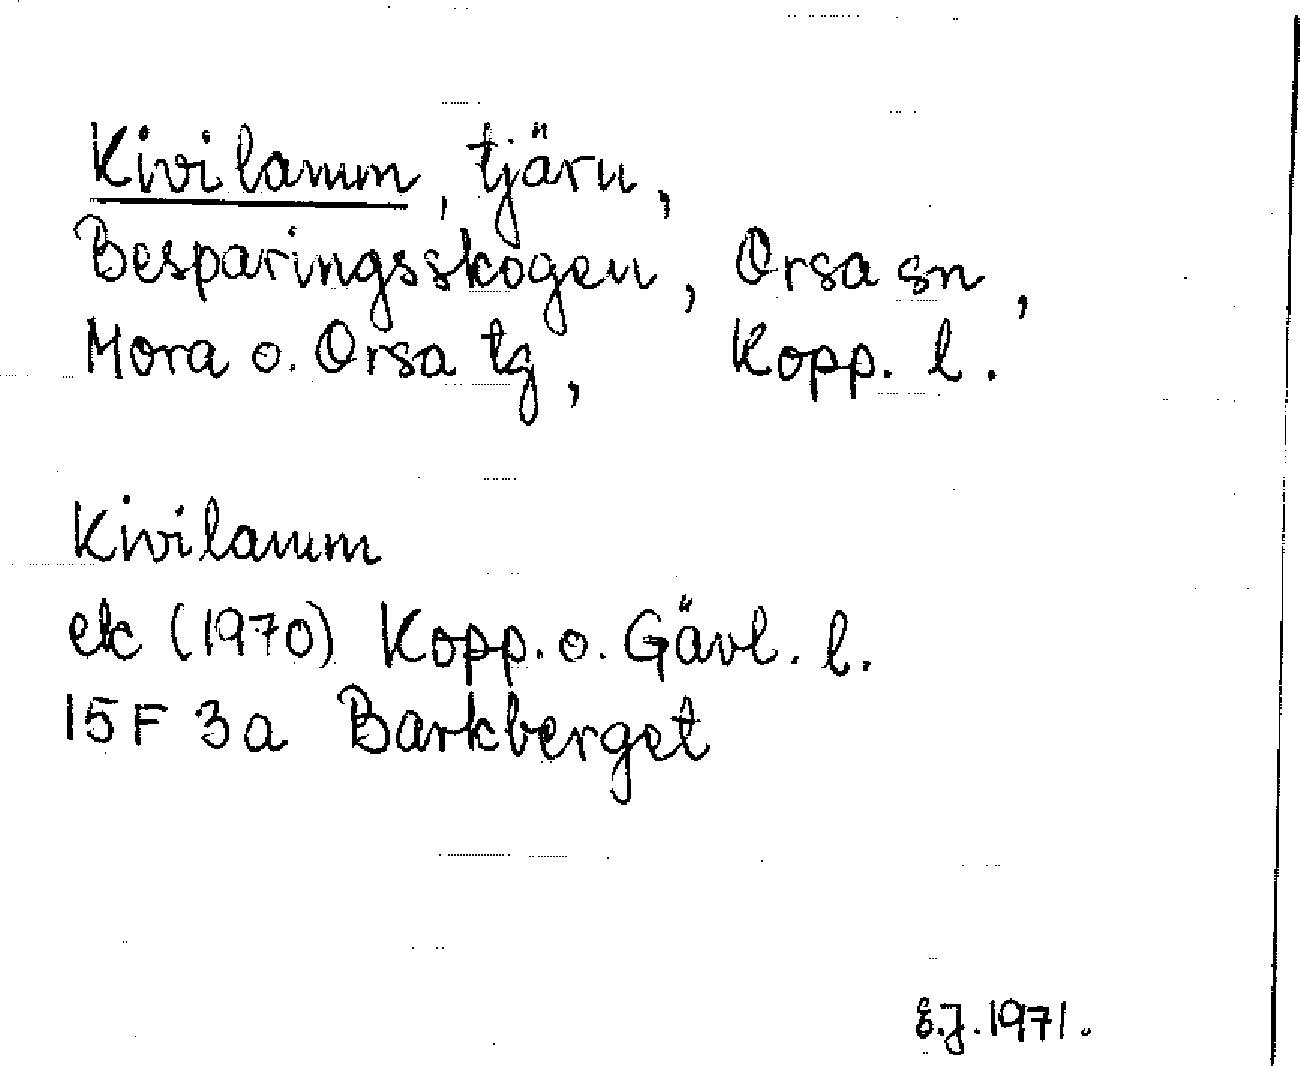 Kivilamm, tjärn,
Besparingsskogen, Orsa sn,
Mora o. Orsa tg, Kopp. l.
Kivilamm
ek (1970) Kopp. o. Gävl. l.
15F 3a Barkberget
E.J. 1971.